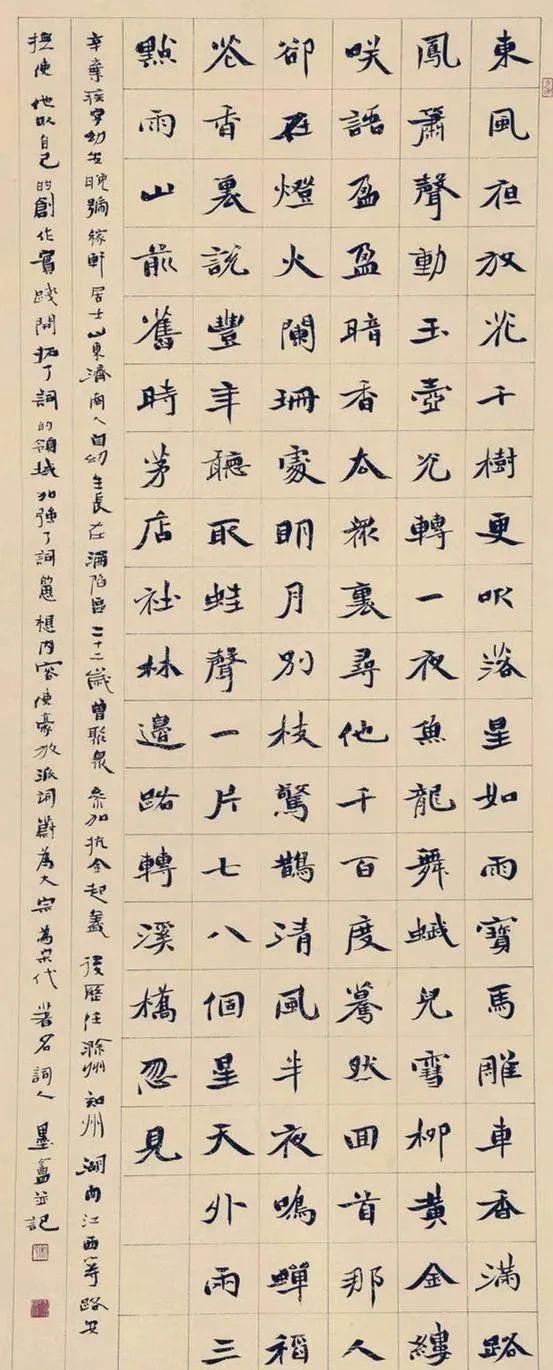 東風夜放花千樹更吹落星如雨寶馬雕車香滿路
鳳簫聲動玉壺光轉一夜魚龍舞蛾兒雪柳黃金縷
咲語盈盈暗香去眾裏尋他千百度驀然回首那人
卻在燈火闌珊處明月別枝驚鵲清風半夜鳴蟬稻
花香裏說豐年聽取蛙聲一片七八個星天外雨三
點雨山前舊時茅店社林邊路轉溪橋忽見
辛棄疾字幼安晚號稼軒居士山東濟南人自幼生長在淪陷區二十二歲曾聚眾參加抗金起義後歷任滁州知州湖南江西等路安
撫使他以自己的創作實踐開拓了詞的領域加強了詞思想內容使豪放派詞蔚為大宗為宋代著名詞人墨盦並記